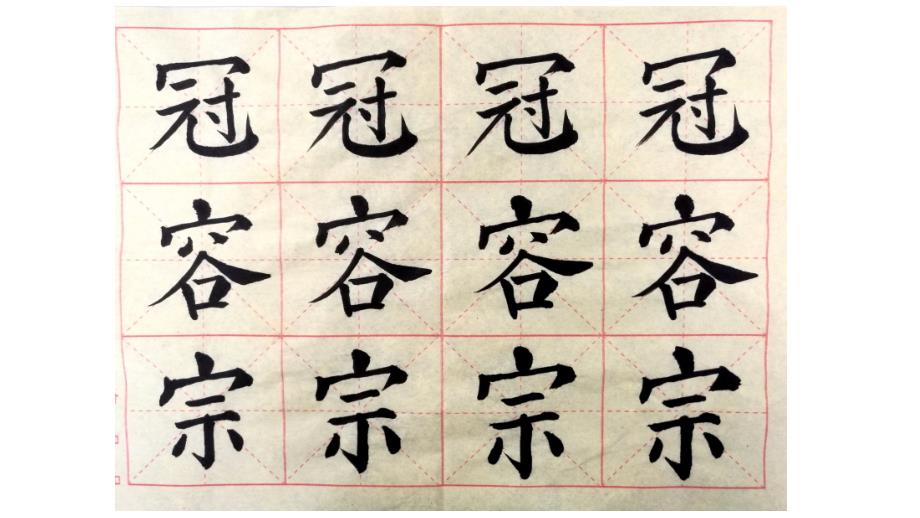 冠冠冠冠
容容容容
宗宗宗宗